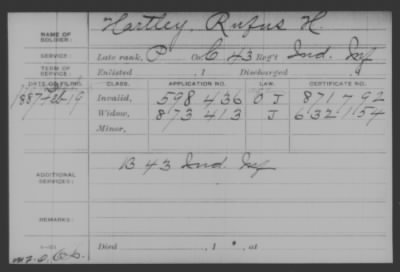 NAME OF SOLDIER: Hartley, Rufus H.
SERVICE: Late rank, P Co. C, 43 Reg't Ind. Inf
TERM OF SERVICE: Enlisted , 1 Discharged , 1
DATE OF FILING. CLASS. APPLICATION NO. LAW. CERTIFICATE NO.
1887 Feb 19 Invalid, 598 436 O J 871792
Widow, 873 413 J 632154
Minor,
ADDITIONAL SERVICES: B 43 Ind. Inf
REMARKS:
Died , 1 , at